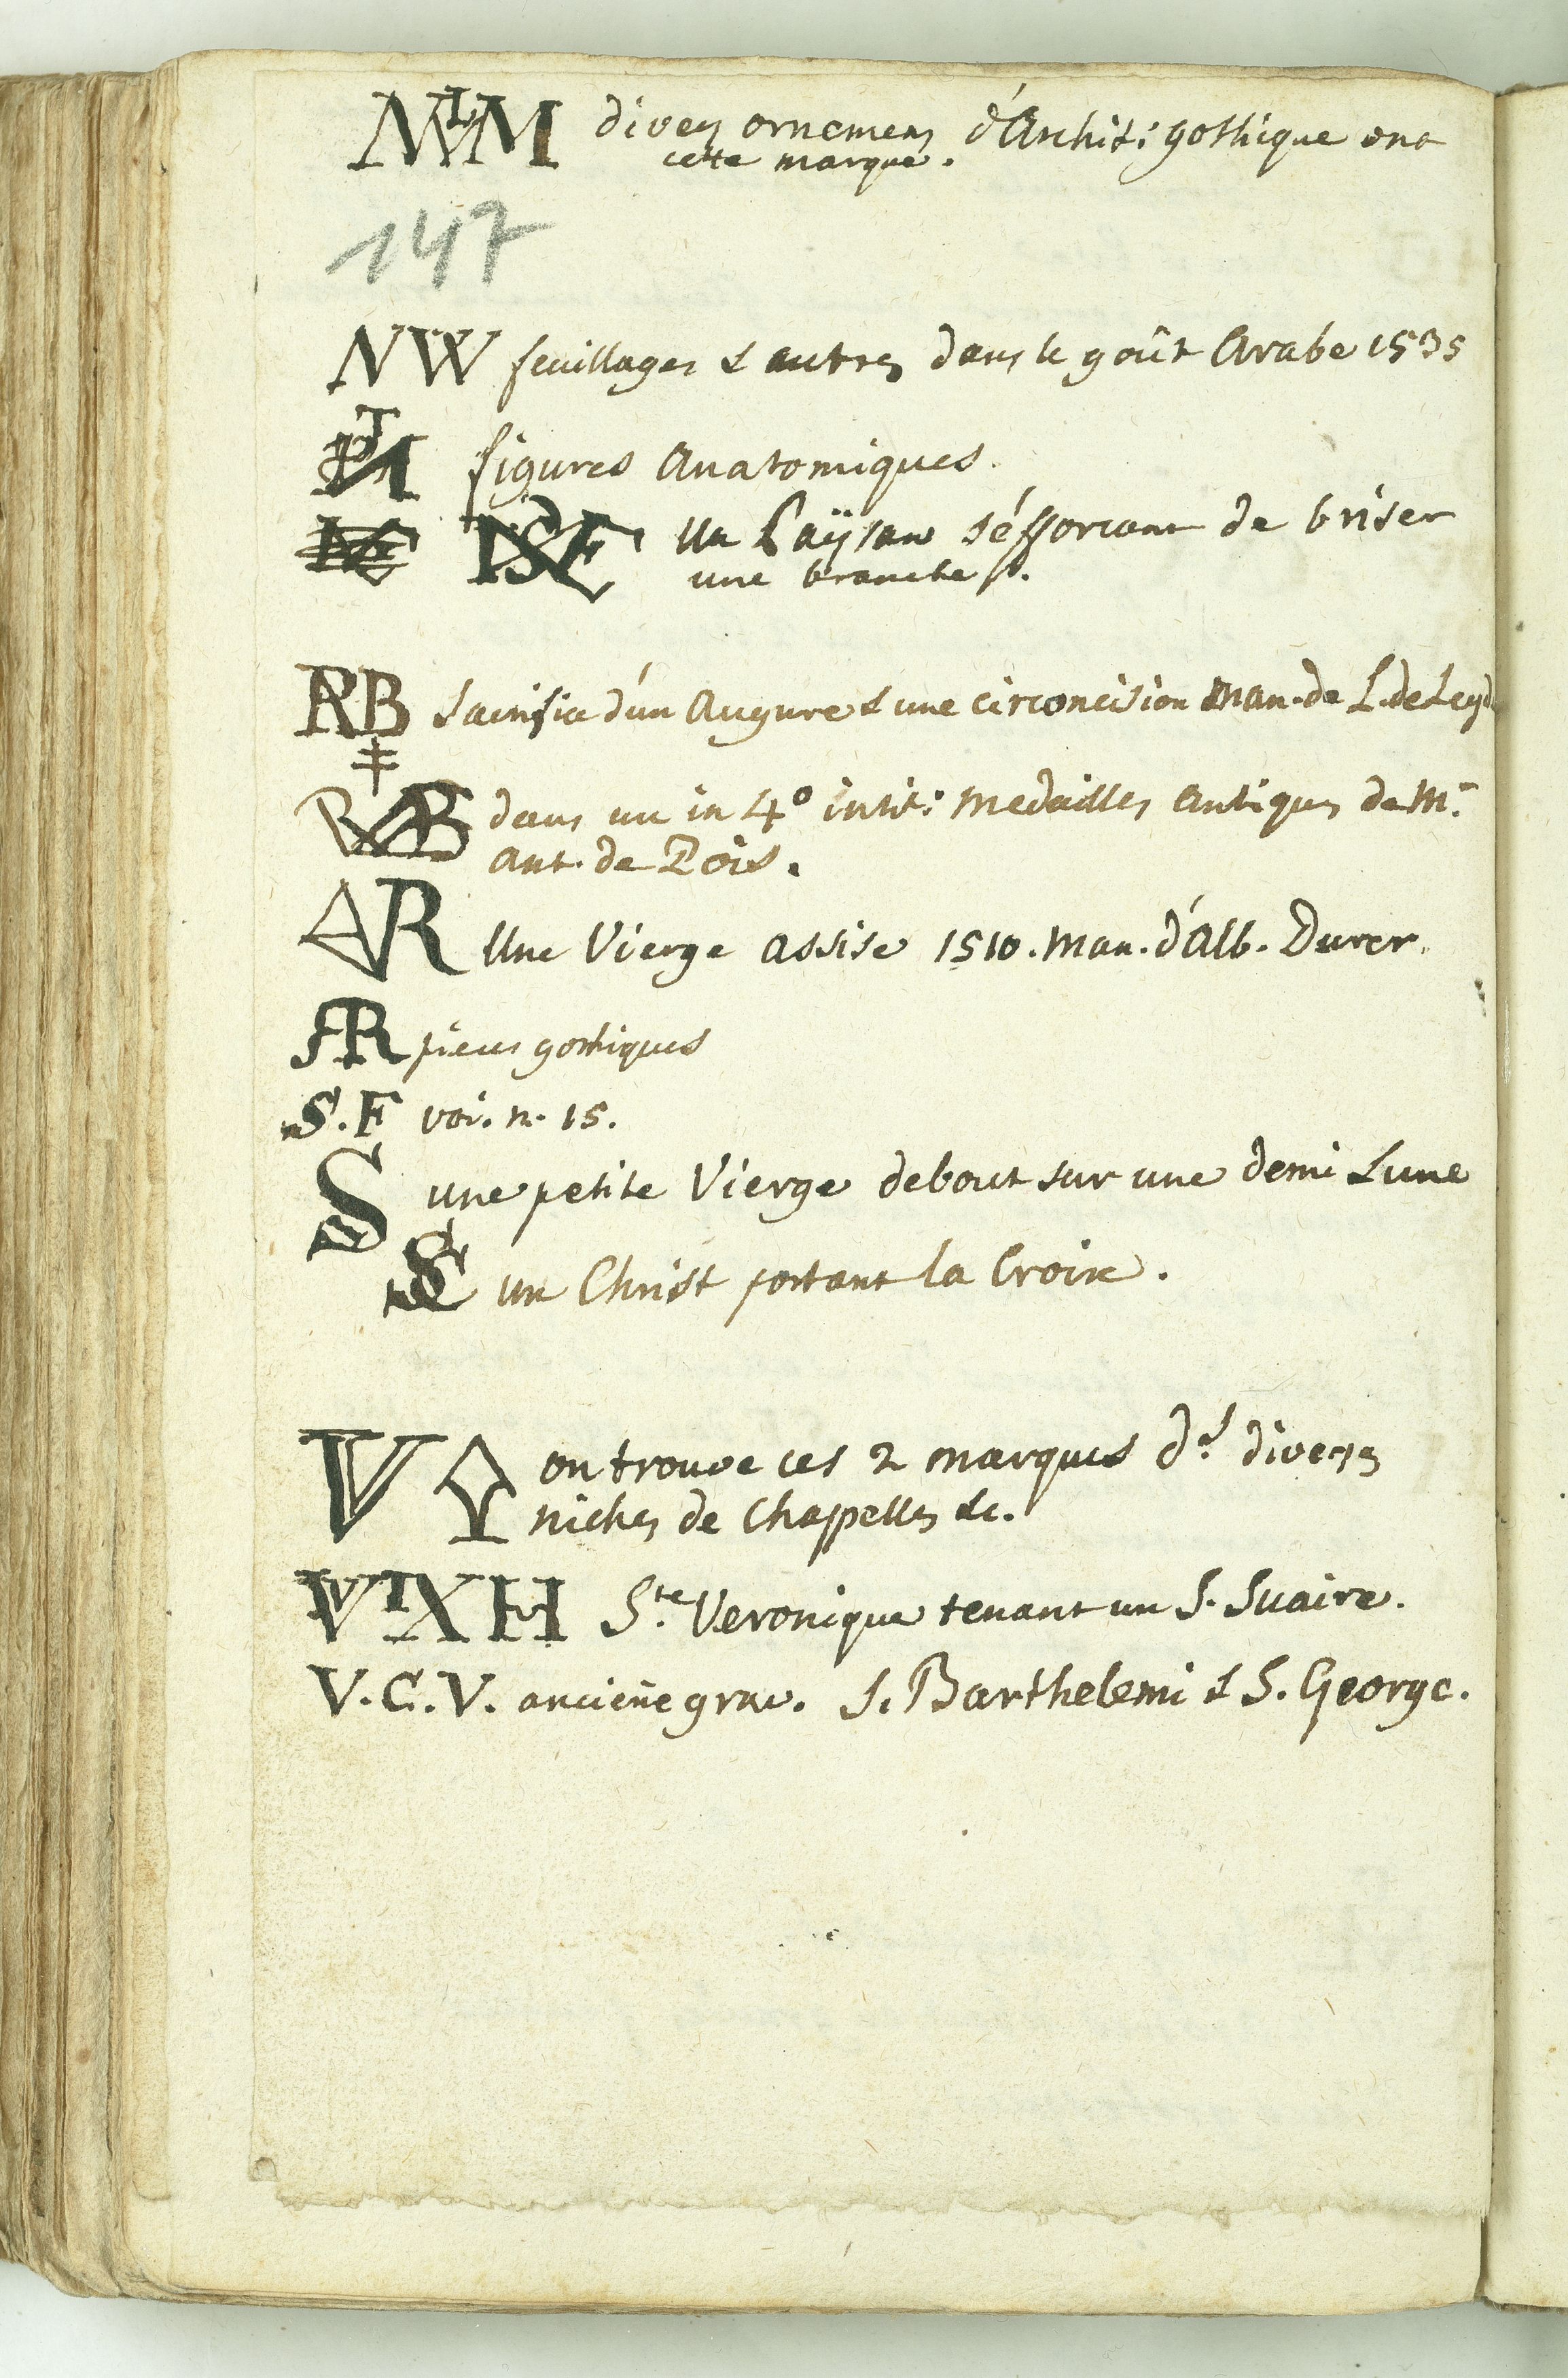 NLM divers ornemens d'Archit: gothique ont
cette marque.
147
NW feuillages & autres dans le goût Arabe 1535
figures Anatomiques.
un Paÿsan s'éfforcant de briser
une branche
RB Sacrifice d'un Augure & une circoncision man. de L. de Leyd
dans un in 4º intit: Medailles Antiques de Mr.
Ant. de Pois.
AR Une Vierge assise 1510. Man. d'Alb. Durer.
FR pieces gothiques
S.F voi. n. 15.
S une petite Vierge debout sur une demi Lune
SC un Christ portant la Croix.
V on trouve ces 2 marques ds. divers
niches de Chappelles &c.
VIXH Ste. Veronique tenant un S. Suaire.
V.C.V. anciene grav. S. Barthelemi & S. George.